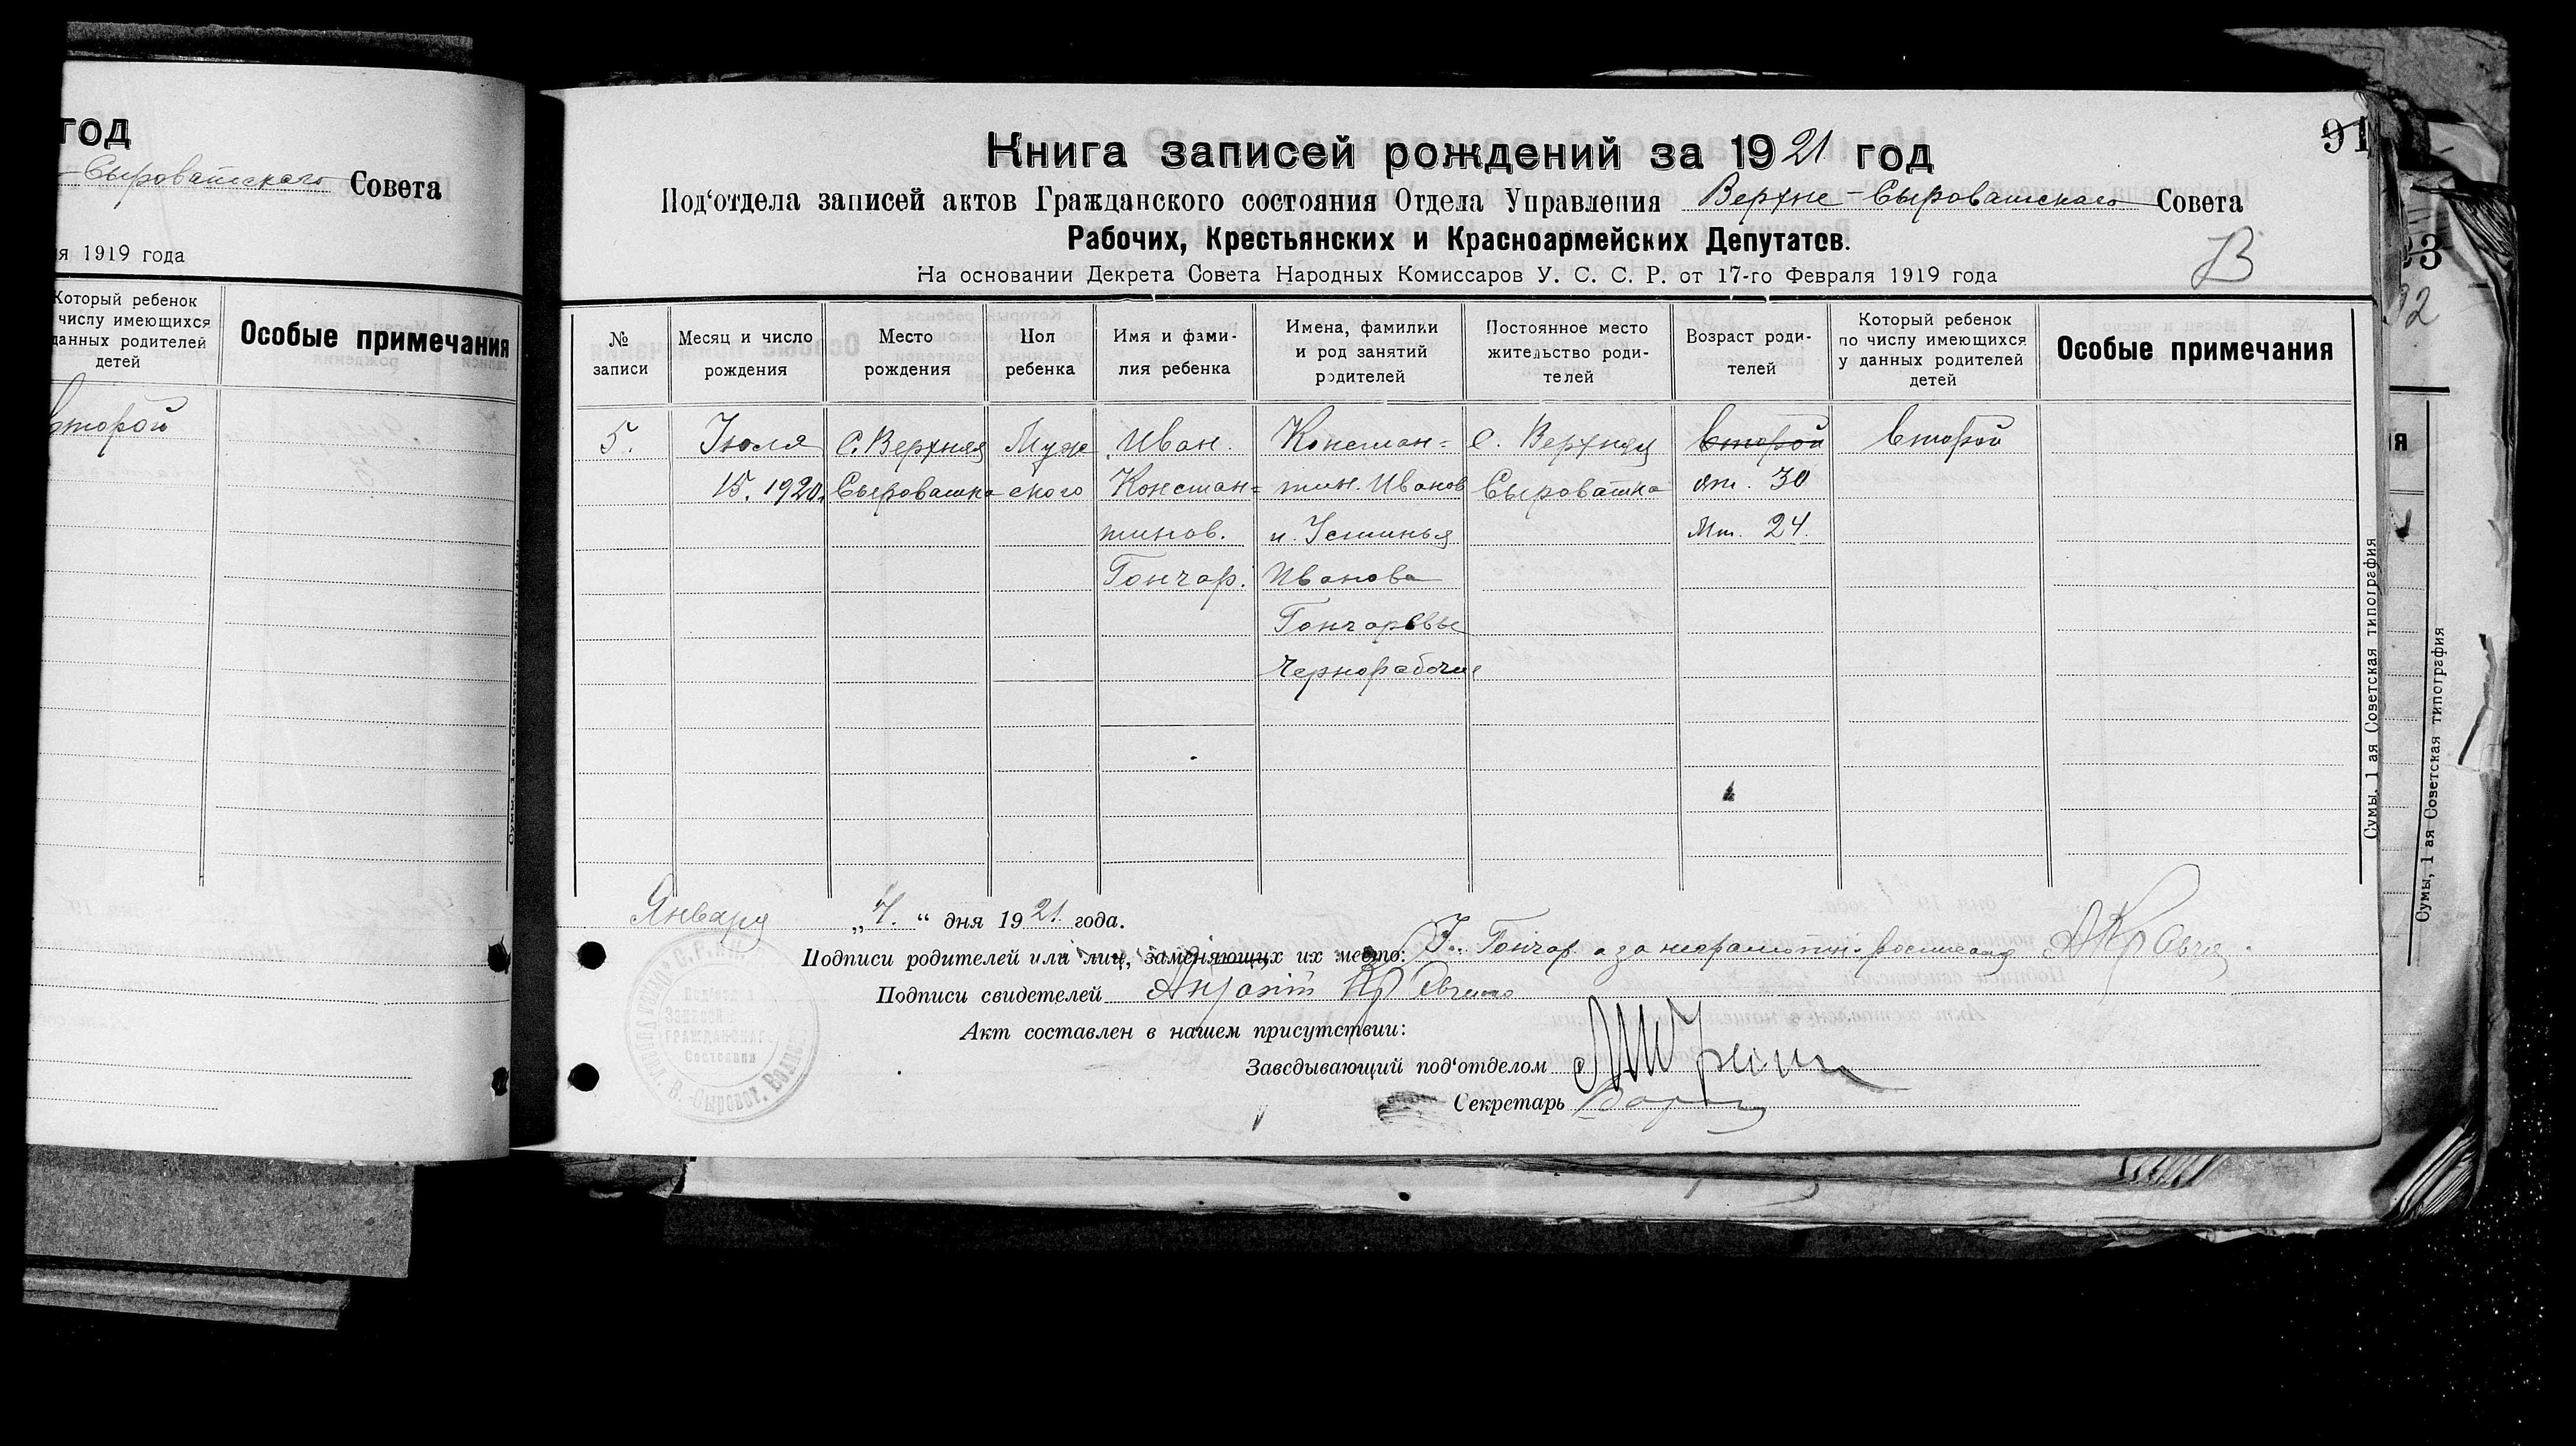 год
Сыроватскаго Совета
я 1919 года
Который ребенок
числу имеющихся
данных родителей
детей
Особые примечания
второй
Книга записей рождений за 1921 год
91
Под‘отдела записей актов Гражданского состояния Отдела Управления Верхне-Сыроватскаго Совета
Рабочих, Крестьянских и Красноармейских Депутатов.
На основании Декрета Совета Народных Комиссаров У. С. С. Р. от 17-го Февраля 1919 года
В
№
записи
Месяц и число
рождения
Место
рождения
Пол
ребенка
Имя и фами-
лия ребенка
Имена, фамилии
и род занятий
родителей
Постоянное место
жительство роди-
телей
Возраст роди-
телей
Который ребенок
по числу имеющихся
у данных родителей
детей
Особые примечания
5.
Июля
15. 1920.
С. Верхняя
Сыроватка
Муж
ского
Иван.
Констан=
тинов.
Гончар.
Констан=
тин. Иванов
и. Устинья
Иванова
Гончаровы
Чернорабочие
С. Верхняя
Сыроватка
второй
от. 30
Мт. 24.
второй
Января „4.“ дня 1921 года.
Подписи родителей или лиц, заменяющих их место: Гончар а за неграмотн. росписался
Подписи свидетелей
Акт составлен в нашем присутствии:
Заведывающий под‘отделом
Секретарь
Под‘отдел
Записей
ГРАЖДАНСКАГО
Состояния
Сумы, 1 ая Советская типография
93
92
я
Сумы, 1 ая Советская типография
Сумы, 1 ая Советская типография